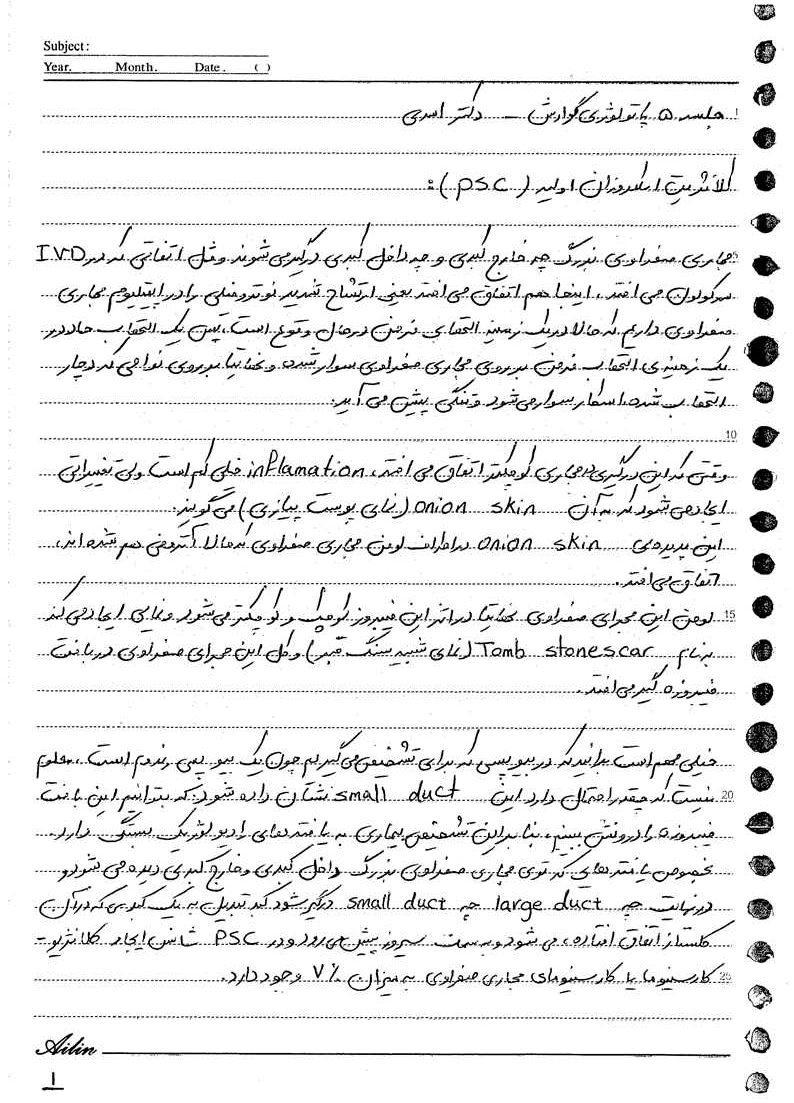 Subject:
Year. Month. Date. ( )
جلسه ۵ پاتولوژی گوارش – دکتر اسدی
کلانژیت اسکلروزان اولیه (PSC):
مجاری صفراوی بزرگ چه خارج کبدی و چه داخل کبدی درگیر می شوند و مثل اتفاقی که در I.V.D
سر کولون می افتد، اینجا هم اتفاق می افتد یعنی ارتشاح شدید نوتروفیلی را در اپیتلیوم مجاری
صفراوی داریم که حالا در یک زمینه التهابی مزمن در حال وقوع است، پس یک التهاب حاد در
یک زمینه ی التهاب مزمن بر روی مجاری صفراوی سوار شده و نهایتا بر روی نواحی که دچار
التهاب شده اسکار سوار می شود و تنگی پیش می آید.
10
وقتی که این درگیری در مجاری کوچکتر اتفاق می افتد، inflamation خیلی کم است ولی تغییراتی
ایجاد می شود که به آن onion skin (نمای پوست پیازی) می گویند.
این پدیده ی onion skin در اطراف لومن مجاری صفراوی که حالا آتروفی هم شده اند،
اتفاق می افتد.
15 لومن این مجرای صفراوی نهایتا در اثر این فیبروز کوچک و کوچکتر می شود و نمایی ایجاد می کند
به نام Tomb stone scar (نمای شبیه سنگ قبر) و کل این مجرای صفراوی در بافت
فیبروزه گیر می افتد.
خیلی مهم است بدانید که در بیوپسی که برای تشخیص می گیریم چون یک بیوپسی رندوم است، معلوم
20 نیست که چقدر احتمال دارد این small duct نشان داده شود که بتوانیم این بافت
فیبروزه را درونش ببینیم، بنابراین تشخیص بیماری به یافته های رادیولوژیک بستگی دارد.
بخصوص یافته هایی که توی مجاری صفراوی بزرگ داخل کبدی و خارج کبدی دیده می شود و
در نهایت چه large duct چه small duct درگیر شود کبد تبدیل به یک کبدی که در آن
کلستاز اتفاق افتاده، می شود و به سمت سیروز پیش می رود و در PSC شانس ایجاد کلانژیو-
25 کارسینوما یا کارسینومای مجاری صفراوی به میزان ۷% وجود دارد.
Ailin
1